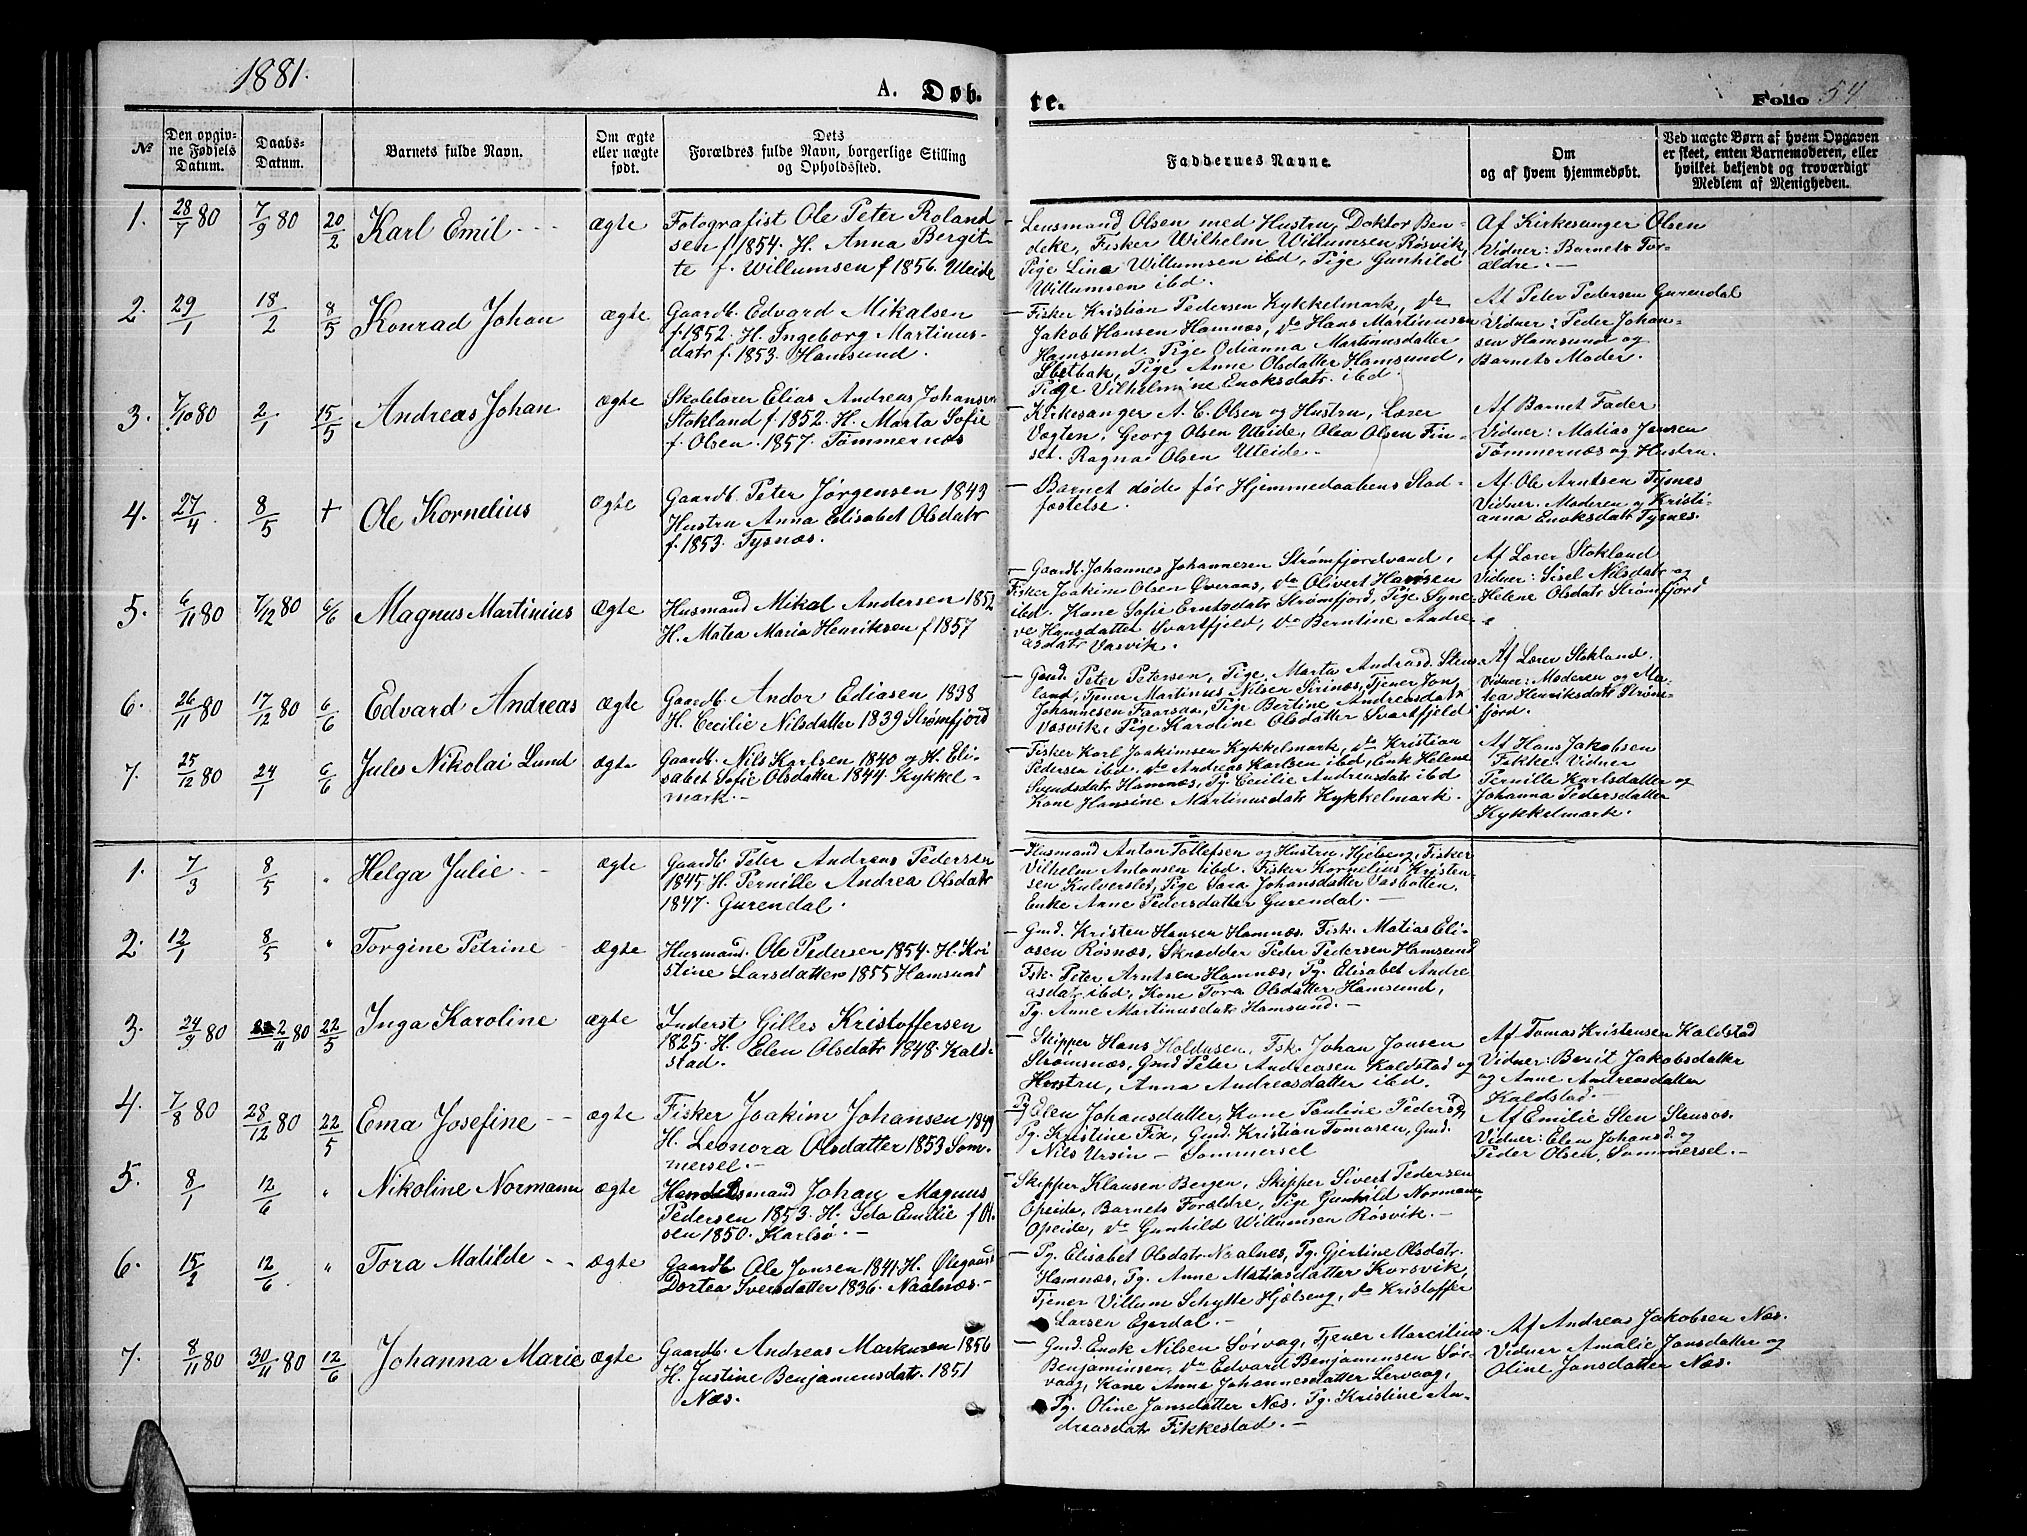 1881.
A. Døb-
te.
Folio 54
№
Den opgiv-
ne Fødsels
Datum.
Daabs-
Datum.
Barnets fulde Navn.
Om ægte
eller uægte
født.
Dets
Forældres fulde Navn, borgerlige Stilling
og Opholdssted.
Faddernes Navne.
Om
og af hvem hjemmedøbt.
Ved uægte Børn af hvem Opgaven
er skeet, enten Barnemoderen, eller
hvilket bekjendt og troværdigt
Medlem af Menigheden.
1. 28/7 80 7/9 80 20/2 Karl Emil ægte
Fotografist Ole Peter Roland
sen f 1854. H. Anna Bergit-
te f. Willumsen f 1856. Uteide
Lensmand Olsen med Hustru, Doktor Ben-
deke, Fisker Wilhelm Willumsen Røsvik,
Pige Lina Willumsen ibd, Pige Gunhild
Willumsen ibd.
Af Kirkesanger Olsen
Vidner: Barnets For-
ældre.
2. 29/1 18/2 8/5 Konrad Johan ægte
Gaardb. Edvard Mikalsen
f. 1852. H. Ingeborg Martinus-
datr f. 1853. Hamsund.
Fisker Kristian Pedersen Kykkelmark, do
Jakob Hansen Hamnæs, do Hans Martinusen
Hamsund. Pige Odianna Martinusdatter
Sletbak, Pige Anne Olsdatter Hamsund,
Pige Vilhelmine Enoksdatr. ibd.
Af Peter Pedersen Gurendal
Vidner: Peder Johan-
sen Hamsund og
Barnets Moder.
3. 7/10 80 2/1 15/5 Andreas Johan ægte
Skolelærer Elias Andreas Johansen
Stokland f 1852. H. Marta Sofie
f. Olsen. 1857. Tømmernæs
Kirkesanger A. C. Olsen og Hustru, Lærer
Vogten, Georg Olsen Uteide, Olea Olsen Fin-
set. Ragna Olsen Uteide.
Af Barnet Fader
Vidner: Matias Jensen
Tømmernæs og Hustru.
4. 27/4 8/5 + Ole Kornelius ægte
Gaardb. Peter Jørgensen 1843
Hustru Anna Elisabet Olsdatr
f. 1853. Tysnæs.
Barnet døde før Hjemmedaabens Stad-
fæstelse.
Af Ole Arntsen Tysnes
Vidner. Moderen og Kristi-
anna Enoksdatr Tysnes.
5. 6/11 80 7/12 80 6/6 Magnus Martinius ægte
Husmand Mikal Andersen 1852
H. Matea Maria Henriksen f 1857
Gaardb. Johannes Johannesen Strømfjordvand,
Fisker Joakim Olsen Øveraas, do Olivert Hansen
ibd. Kone Sofie Erntsdatr Strømfjord, Pige Syne-
ve Hansdatter Svartfjeld, do Berntine Andre-
asdatr Vasvik.
Af Lærer Stokland
Vidner: Sisel Nilsdatr og
Helene Olsdatr Strømfjord
6. 26/11 80 17/12 80 6/6 Edvard Andreas ægte
Gaardb. Andor Ediasen 1838
H. Cecilie Nilsdatter 1839 Strømfjord
Gmd. Peter Petersen, Pige Marta Andrasd. Stens-
land, Tjener Martinus Nilsen Sirinæs, Tjener Jon
Johannesen Faarsaa, Pige Bertine Andreasdatr
Vasvik, Pige Karoline Olsdatter Svartfjeld
Af Lærer Stokland.
Vidner: Moderen og Ma-
tea Henriksdatr Strøm-
fjord.
7. 25/12 80 24/1 6/6 Jules Nikolai Lund ægte
Gaardb. Nils Karlsen 1840 og H. Eli-
sabet Sofie Olsdatter 1844. Kykkel-
mark.
Fisker Karl Joakimsen Kykkelmark, do Kristian
Pedersen ibd, do Andreas Karlsen ibd, Enk Helene
Sjundsdatr Hamnæs, Pg. Cecilie Andreasdatr ibd
Kone Hansine Martinusdatr Kykkelmark.
Af Hans Jakobsen
Fikke. Vidner
Pernille Karlsdatter og
Johanna Pedersdatter
Kykkelmark.
1. 7/3 8/5 " Helga Julie ægte
Gaardb. Peter Andreas Pedersen
1845 H. Pernille Andrea Olsdatr
1847. Gurendal.
Husmand Anton Tollefsen og Hustru, Hjelseng, Fisker
Vilhelm Antonsen ibd. Fisker Kornelius Kristen-
sen Kulverslet, Pige Sara Johansdatter Vasbotten,
Enke Anne Pedersdatter Gurendal.
2. 12/1 8/5 " Torgine Petrine ægte
Husmand Ole Pedersen 1854. H. Kri
stine Larsdatter 1855 Hamsund
Gmd. Kristen Hansen Hamnæs. Fisk. Matias Eli-
asen Røsnæs, Skrædder Peder Pedersen Hamsund
Fsk. Peter Arntsen Hamnæs, Pg. Elisabet Andre
asdatr ibd, Kone Tora Olsdatter Hamsund,
Pg. Anne Martinusdatr Hamsund.
3. 24/9 80 2/11 80 22/5 Inga Karoline ægte
Inderst Gilles Kristoffersen
1825. H. Elen Olsdatr 1848. Kald-
stad.
Skipper Hans Koldusen, Fsk. Johan Jonsen
Strømsnæs, Gmd Peter Andreasen Kaldstad og
Hustru, Anna Andreasdatter ibd.
Af Tomas Kristensen Kaldstad
Vidner: Berit Jakobsdatter
og Anne Andreasdatter
Kaldstad.
4. 7/8 80 28/12 80 22/5 Ema Josefine ægte
Fisker Joakim Johansen 1849
H. Leonora Olsdatter 1853 Som-
mersel.
Pg Elen Johansdatter, Kone Pauline Pedersd,
Pg. Kristine Fix, Gmd. Kristian Tomasen, Gmd.
Nils Ursin Sommersel
Af Emilie Sten Stensos.
Vidner: Elen Johansd. og
Peder Olsen, Sommersel.
5. 8/1 12/6 " Nikoline Normann ægte
Handelsmand Johan Magnus
Pedersen 1853. H. Ida Emilie f Ol-
sen 1850. Karlsø.
Skipper Klausen Bergen, Skipper Sivert Pedersen
Opeide, Barnets Forældre, Pige Gunhild Normann
Opeide, do Gunhild Willumsen Røsvik.
6. 15/2 12/6 " Tora Matilde ægte
Gaardb Ole Jonsen 1841 H. Ølegaard
Dortea Sversdatter 1836. Naalnæs.
Pg. Elisabet Olsdatr Naalnes, Pg. Gjertine Olsdatr.
Hamnæs, Pg. Anne Matiasdatter Korsvik,
Tjener Villum Schytte Hjælseng, do Kristoffer
Larsen Egerdal.
7. 8/11 80 30/11 80 12/6 Johanna Marie ægte
Gaardb. Andreas Markusen 1856
H. Justine Benjamensdatr. 1851
Næs.
Gmd. Enok Nilsen Sørvag, Tjener Marcilius
Benjaminsen, do Edvard Benjaminsen Sør-
vaag, Kone Anne Johannesdatter Lervaag,
Pg. Oline Jonsdatter Næs. Pg. Kristine An-
dreasdatr Fikkestad.
Af Andreas Jakobsen Næs.
Vidner Amalie Jonsdatter og
Oline Jonsdatter Næs.